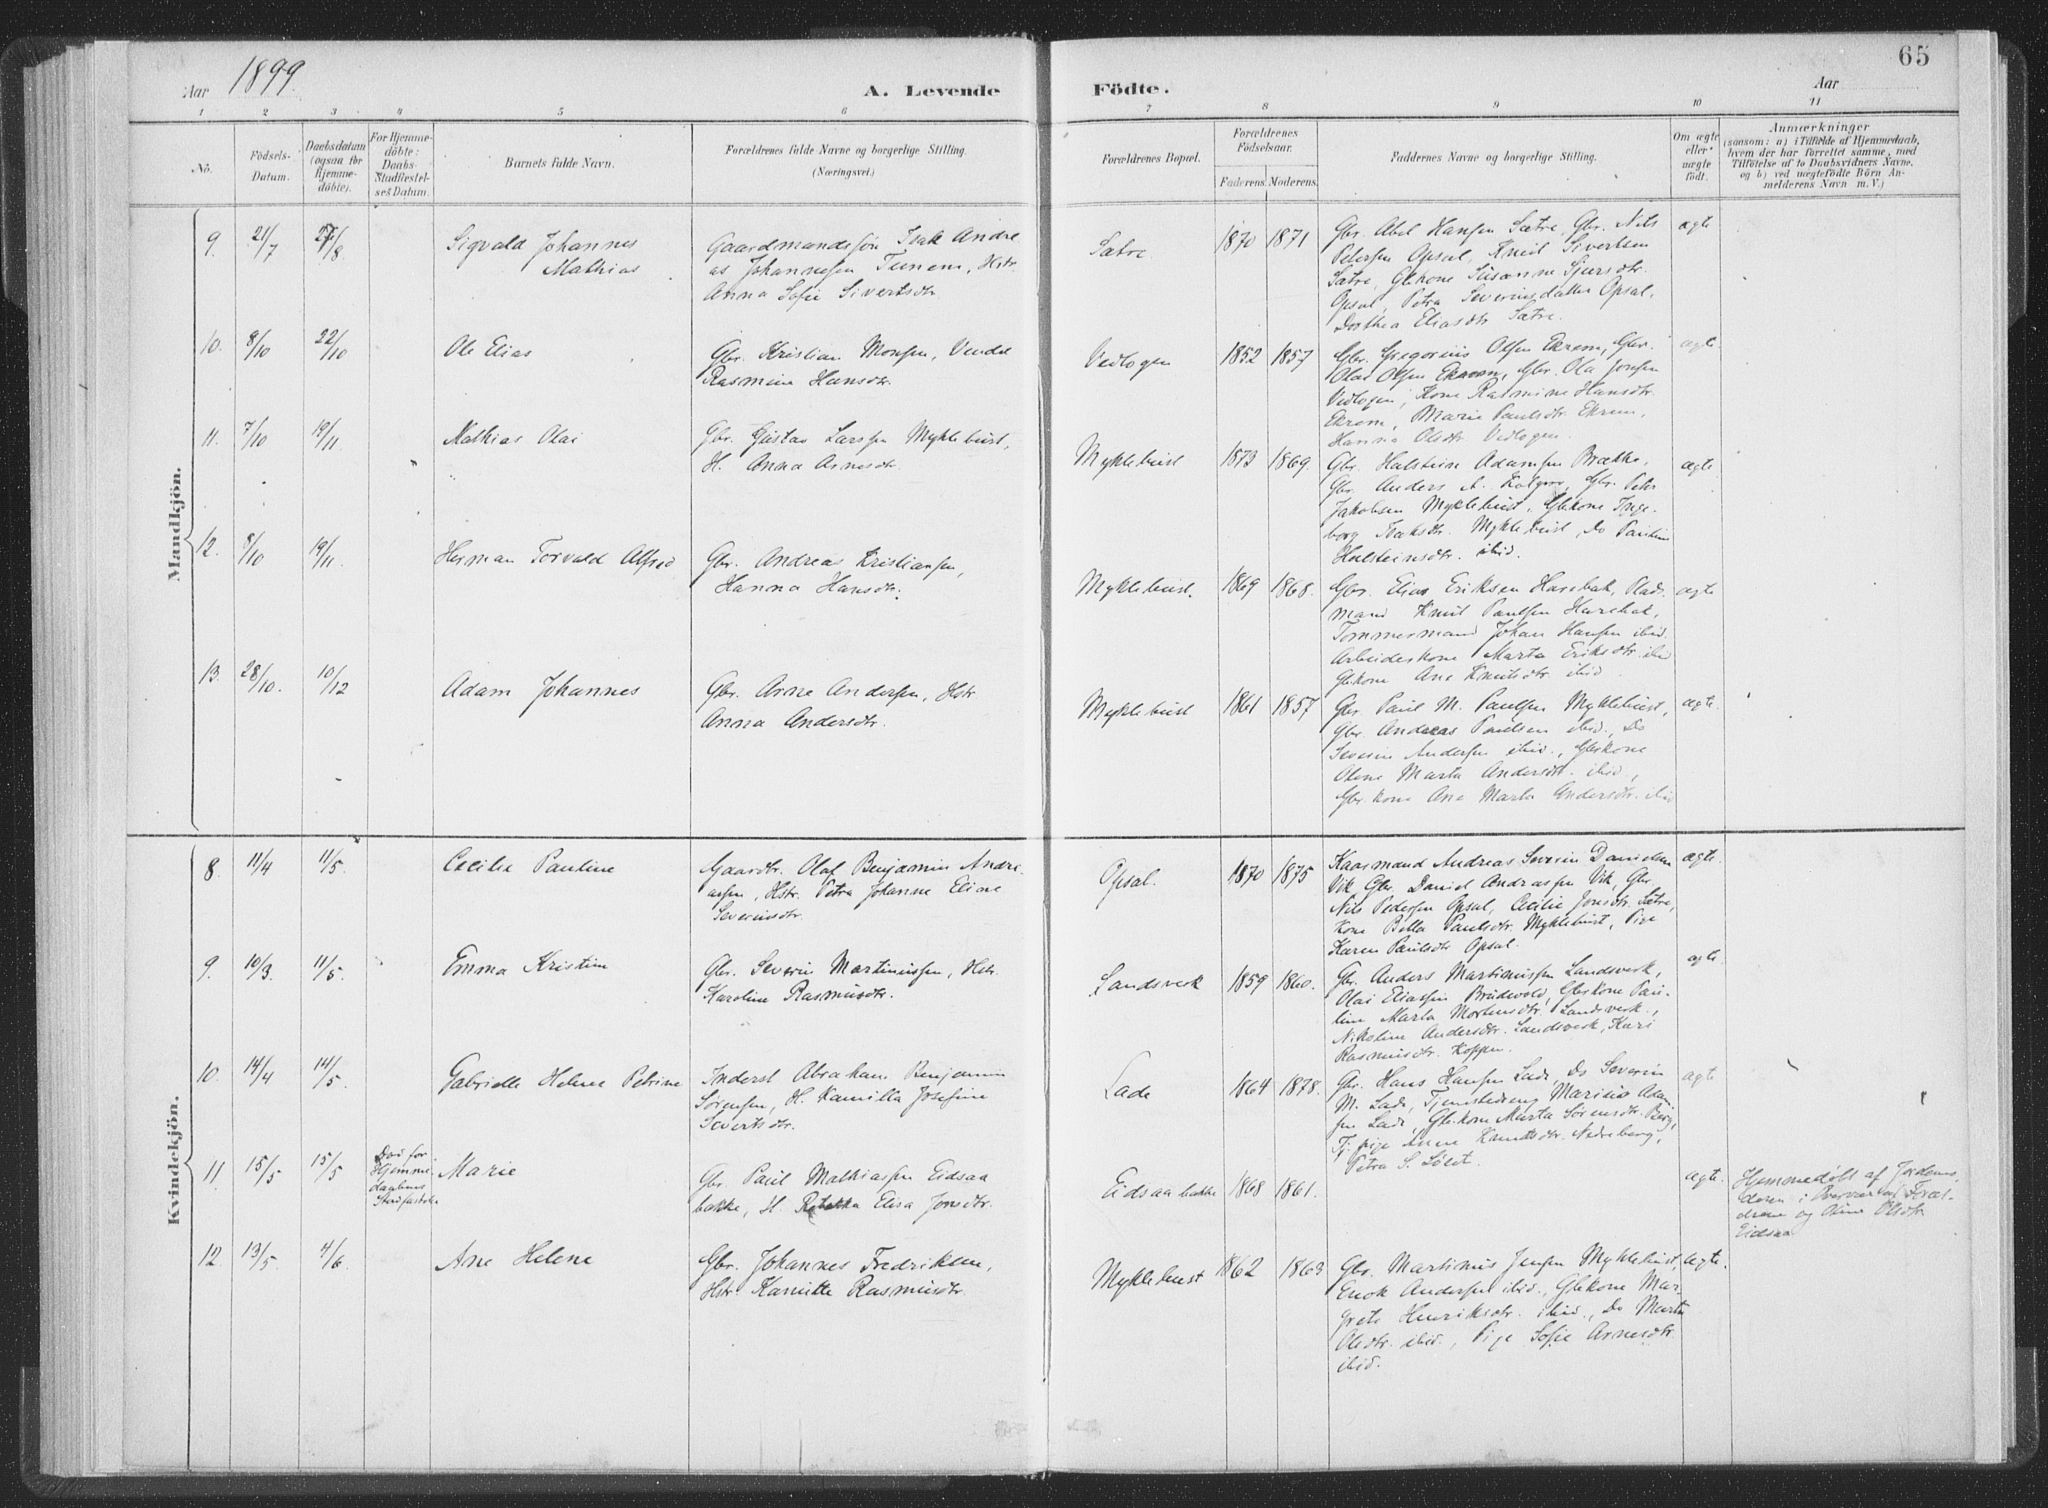 65
Aar 1899.
A. Levende Födte.
Aar
1 2 3 4 5 6 7 8 9 10 11
No.
Födsels-
Datum.
Daabsdatum
(ogsaa for
Hjemme-
döbte).
For Hjemme-
döbte:
Daabs-
Stadfæstel-
ses Datum.
Barnets fulde Navn.
Forældrenes fulde Navne og borgerlige Stilling.
(Næringsvei.)
Forældrenes Bopæl.
Forældrenes
Födselsaar.
Faderens. Moderens.
Faddernes Navne og borgerlige Stilling.
Om ægte
eller
uægte
födt.
Anmærkninger
(saasom: a) i Tilfælde af Hjemmedaab,
hvem der har forrettet samme, med
Tilföielse af to Daabsvidners Navne,
og b) ved uægtefödte Börn An-
melderens Navn m. V.)
Mandkjön.
9. 21/7 27/8
Sigvald Johannes
Mathias
Gaardmandssøn Isak Andre
as Johannesen Tunem, Hstr.
Anna Sofie Sivertsdtr.
Sætre
1870 1871
Gbr. Abel Hansen Sætre, Gbr. Nils
Petersen Opsal, Knut Sivertsen
Sætre, Gbkone Susanne Sjursdtr.
Opsal, Petra Severinsdatter Opsal,
Dorthea Eliasdtr. Sætre.
ægte
10. 8/10 22/10
Ole Elias
Gbr. Kristian Monsen, Vendel
Rasmine Hansdtr.
Vedlogen
1852 1857
Gbr. Gregorius Olsen Ekrem, Gbr.
Olai Olsen Ekrem, Gbr. Ola Jonsen
Vedlogen, Kone Rasmine Hansdtr.
Ekrem, Marie Paulsdtr. Ekrem,
Hanna Olsdtr. Vedlogen.
ægte
11. 7/10 19/11.
Mathias Olai
Gbr. Gustav Larssen Myklebust,
H. Anna Arnesdtr.
Myklebust
1873 1869.
Gbr. Halstein Adamsen Brække,
Gbr. Anders A. Kolgrov, Gbr. Peter
Jakobsen Myklebust, Gbkone Inge-
borg Isaksdtr. Myklebust, Do Pauline
Halsteinsdtr. ibid.
ægte
12. 9/10 19/11.
Herman Torvald Alfred
Gbr. Andreas Kristiansen,
Hanna Hansdtr.
Myklebust.
1869 1868.
Gbr. Elias Eriksen Harebak, Plads-
mand Knut Paulsen Harebak,
Tommermand Johan Hansen ibid.
Arbeideskone Marta Eriksdtr. ibid
Gbkone Ane Knutsdtr. ibid.
ægte
13. 28/10. 10/12
Adam Johannes
Gbr. Arne Andersen, Hstr.
Anna Andersdtr.
Myklebust
1861 1857
Gbr. Paul M. Paulsen Myklebust,
Gbr. Andreas Paulsen ibid., Do
Severin Andersen ibid., Gbkone
Olene Marta Andersdtr. ibid.,
Gbr. kone Ane Marta Andersdtr. ibid
ægte.
Kvindekjön.
8. 11/4 11/5.
Cecilie Pauline
Gaardbr. Olaf Benjamin Andre-
assen, Hstr. Petra Johanne Eliane
Severinsdtr.
Opsal.
1870 1875
Kaarmand Andreas Severin Danielsen
Vik Gbr. Daniel Andreassen Vik, Gbr.
Nils Pedersen Opsal, Cecilie Jonsdtr. Sætre,
Kone Bella Paulsdtr. Myklebust, Pige
Karen Paulsdtr Opsal.
ægte.
9. 10/3. 11/5.
Emma Kristine
Gbr. Severin Martinussen, Hstr.
Karoline Rasmusdtr.
Landsverk
1859 1860.
Gbr. Anders Martinussen Landsverk,
Olai Eliassen Brudevold, Gbkone Pau-
line Marta Mortensdtr. Landsverk,
Nikoline Andersdtr. Landsverk, Kari
Rasmusdtr. Koppen.
ægte
10. 14/4 14/5.
Gabrielle Helene Petrine
Inderst Abraham Benjamin
Sørensen, H. Kamilla Josefine
Sivertsdtr.
Lade
1864 1878.
Gbr. Hans Hansen Lade, Do Severin
M. Lade, Tjenestedreng Marius Adam-
sen Lade, Gbkone Marta Sørensdtr. Berg,
Tj. pige Anne Knutsdtr. Nedreberg,
Petra S. Løset.
ægte
11. 15/5 15/5
Død før
Hjemme
daabens
Stadfæstelse
Marie
Gbr. Paul Mathiassen Eidsaa
bakke, H. Rebekka Elisa Jonsdtr.
Eidsaabakke
1868 1861.
ægte.
Hjemmedøbt af Jordemo-
deren i Overvær af Foræl-
drene og Oline Olsdtr
Eidsaa
12. 13/5. 4/6.
Ane Helene
Gbr. Johannes Fredriksen,
Hstr. Kamilla Rasmusdtr.
Myklebust
1862 1863
Gbr. Martinus Jensen Myklebust,
Enok Andersen ibid., Gbkone Mar-
grete Henriksdtr. ibid., Do Marta
Olsdtr. ibid., Pige Sofie Arnesdtr.
ibid.
ægte.